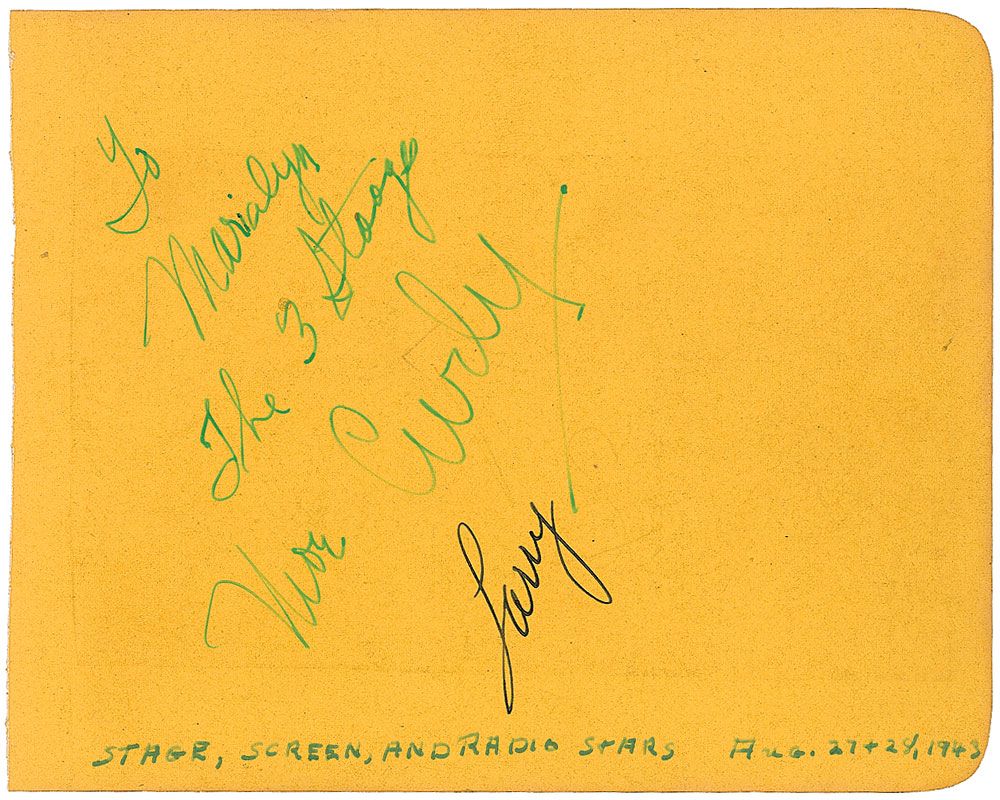 To
Marialyn
The 3 Stooge
Moe
Curly
Larry
STAGE, SCREEN, AND RADIO STARS Aug. 27+28, 1943